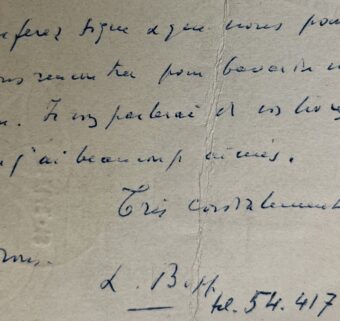 ferez signe & que nous pou
rencontrer pour bavarder
Je vous parlerai de vos livres
j'ai beaucoup aimés.
Très cordialement
L. B
tel. 54.417